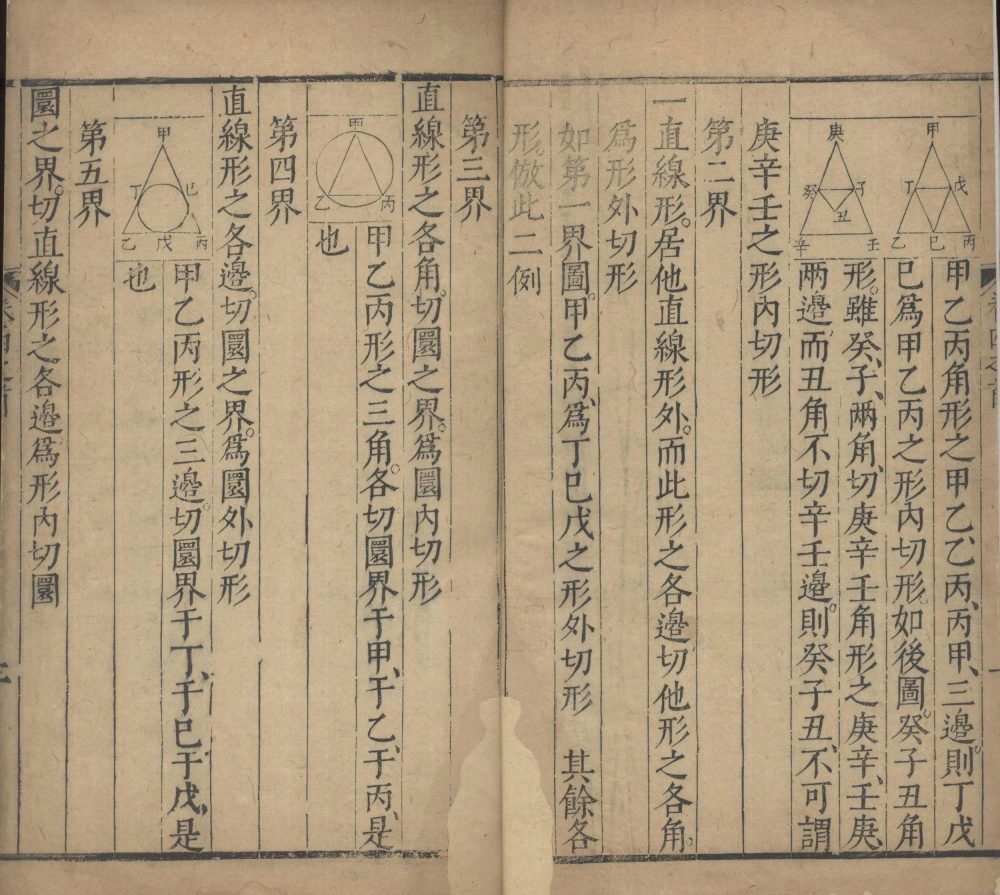 甲乙丙角形之甲乙、乙丙、丙甲、三邊。則丁戊
巳爲甲乙丙之形內切形。如後圖。癸子丑角
形。雖癸、子、兩角、切庚辛壬角形之庚辛、壬庚、
兩邊。而丑角不切辛壬邊。則癸子丑、不可謂
甲
丁
戊
乙
巳
丙
庚
癸
子
丑
辛
壬
庚辛壬之形內切形
第二界
一直線形。居他直線形外。而此形之各邊切他形之各角。
爲形外切形
如第一界圖。甲乙丙、爲丁巳戊之形外切形 其餘各
形倣此二例
第三界
直線形之各角。切圜之界。爲圜內切形
甲
乙
丙
甲乙丙形之三角。各切圜界于甲、于乙、于丙、是
也
第四界
直線形之各邊。切圜之界。爲圜外切形
甲
丁
巳
乙
戊
丙
甲乙丙形之三邊。切圜界于丁、于巳、于戊、是
也
第五界
圜之界。切直線形之各邊。爲形內切圜